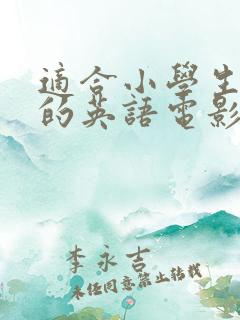 適合小學生
的英語電影
李永吉
未经同意禁止转载